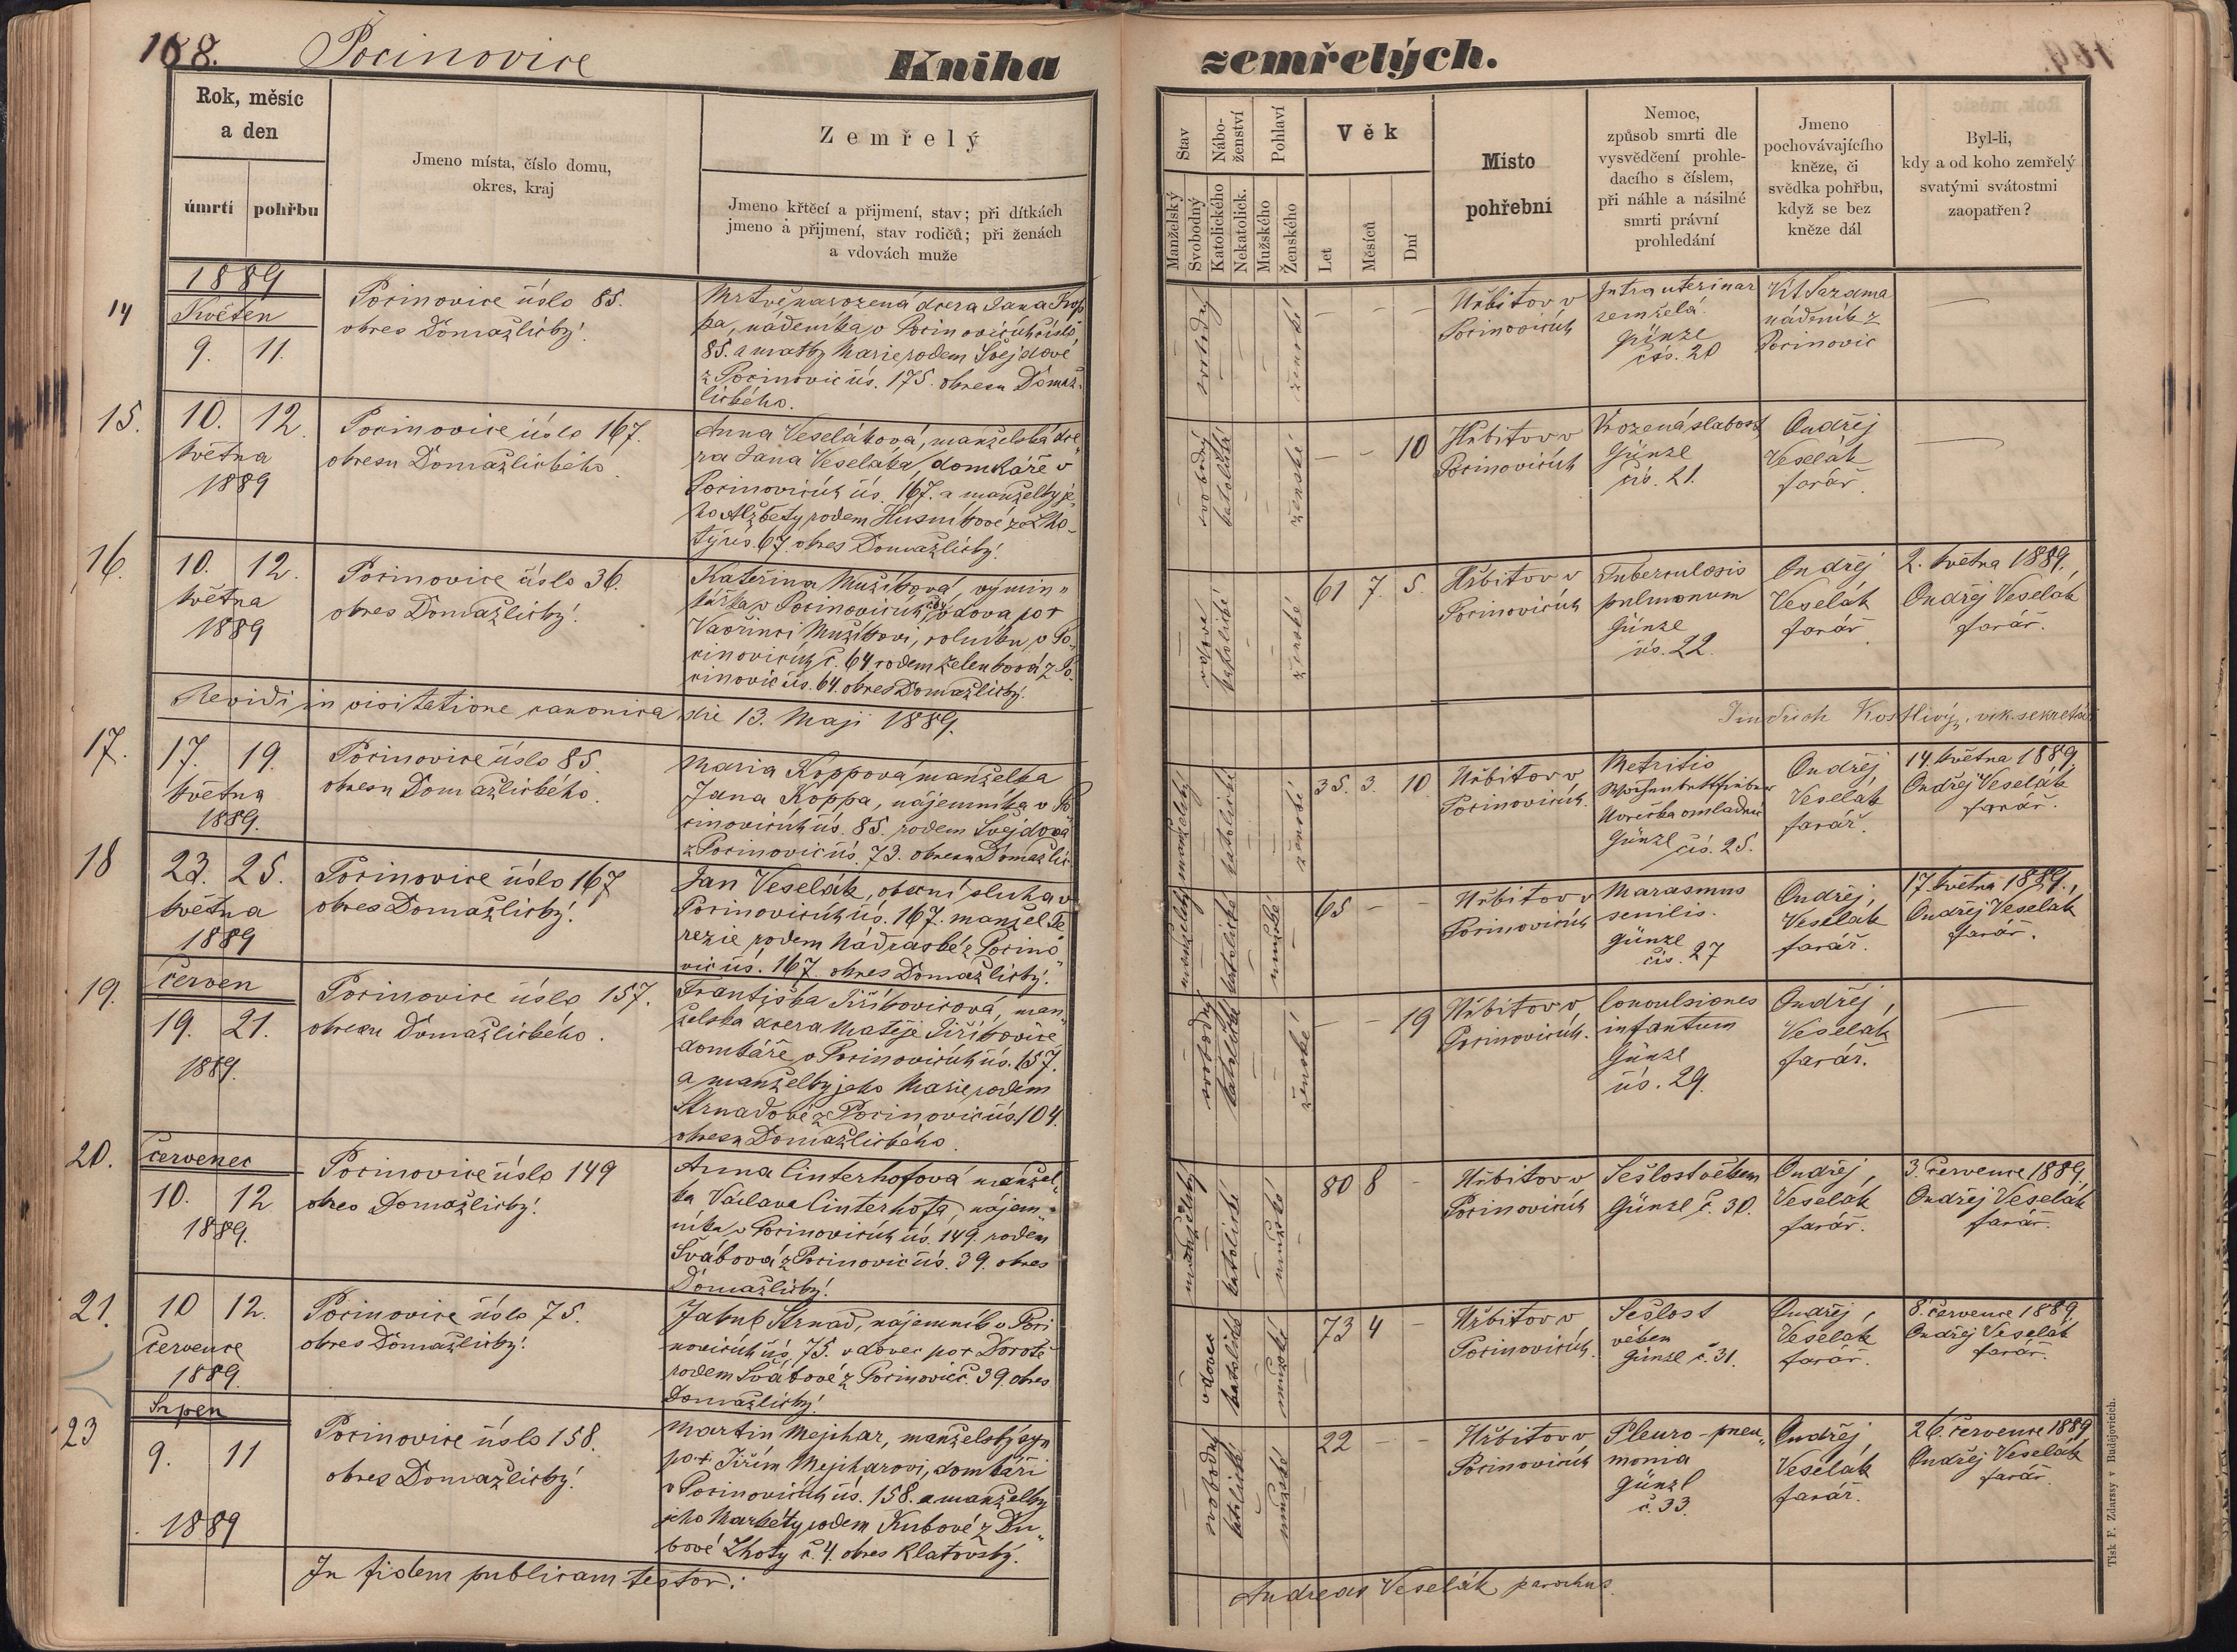 188. Pocinovice
Kniha zemřelých.
Rok, měsíc
a den
úmrtí pohřbu
Jmeno místa, číslo domu,
okres, kraj
Zemřelý
Jmeno křtěcí a přijmení, stav; při dítkách
jmeno a přijmení, stav rodičů; při ženách
a vdovách muže
Stav
Manželský
Svobodný
Nábo-
ženství
Katolického
Nekatolick.
Pohlaví
Mužského
Ženského
Věk
Let
Měsíců
Dní
Místo
pohřební
Nemoc,
způsob smrti dle
vysvědčení prohle-
dacího s číslem,
při náhle a násilné
smrti právní
prohledání
Jmeno
pochovávajícího
kněze, či
svědka pohřbu,
když se bez
kněze dál
Byl-li,
kdy a od koho zemřelý
svatými svátostmi
zaopatřen?
14
1889
Květen
9. 11.
Pocinovice číslo 85.
okres Domažlický.
Mrtvěnarozená dcera Jana Kop
pa, nádeníka v Pocinovicích číslo
85. a matky Marie rodem Švejdové
z Pocinovic čís. 175. okresu Domaž-
lického.
svobodný
ženské
— — —
Hřbitov v
Pocinovicích
Intrauterinar
zemřelá.
Günzl
čís. 20
Vít Sazama
nádeník z
Pocinovic
—
15.
10. 12.
května
1889
Pocinovice číslo 167.
okresu Domažlického.
Anna Veseláková, manželská dce
ra Jana Veseláka, domkáře v
Pocinovicích čís. 167. a manželky je
ho Alžběty rodem Husníkové ze Lho-
ty čís. 67. okres Domažlický.
svobodný
katolické
ženské
— — 10
Hřbitov v
Pocinovicích
Vrozená slabost
Günzl
čís. 21.
Ondřej
Veselák
farář.
—
16.
10. 12.
května
1889
Pocinovice číslo 36.
okres Domažlický.
Kateřina Mužíková, výmin„
kářka v Pocinovicích, vdova po †
Vavřinci Mužíkovi, rolníku v Po„
cinovicích č. 64 rodem Zelenková z Po-
cinovic čís. 64. okres Domažlický.
vdova
katolické
ženské
61 7. 5.
Hřbitov v
Pocinovicích
Tuberculosis
pulmonum
Günzl
čís. 22.
Ondřej
Veselák
farář.
2. května 1889.
Ondřej Veselák
farář.
Revidi in visitatione canonica die 13. Maji 1889.
Jindřich Kostlivý, vik. sekretář
17.
17. 19.
května
1889.
Pocinovice číslo 85.
okresu Domažlického.
Maria Koppová manželka
Jana Koppa, nájemníka v Po
cinovicích čís. 85. rodem Švejdová
z Pocinovic čís. 73. okresu Domažlic
manželský
katolické
ženské
35. 3. 10
Hřbitov v
Pocinovicích.
Metritis
Horečka omladnic
Günzl čís. 25.
Ondřej
Veselák
farář.
14. května 1889.
Ondřej Veselák
farář.
18
23. 25.
května
1889
Pocinovice číslo 167
okres Domažlický.
Jan Veselák, obecní sluha v
Pocinovicích čís. 167. manžel Te
rezie rodem Nádraské z Pocino
vic čís. 167. okres Domažlický.
manželský
katolické
mužské
65 — —
Hřbitov v
Pocinovicích
Marasmus
senilis.
Günzl
čís. 27
Ondřej
Veselák
farář.
17. května 1889.,
Ondřej Veselák
farář.
19.
červen
19. 21.
1889.
Pocinovice číslo 157.
okresu Domažlického.
Františka Jiříkovicová, man„
želská dcera Matěje Jiříkovice
domkáře v Pocinovicích čís. 157.
a manželky jeho Marie rodem
Strnadové z Pocinovic čís. 104.
okresu Domažlického.
svobodný
katolické
ženské
— — 19
Hřbitov v
Pocinovicích.
Convulsiones
infantum
Günzl
čís. 29.
Ondřej
Veselák
farář.
—
20.
červenec
10. 12
1889.
Pocinovice číslo 149
okres Domažlický.
Anna Cinterhofová manžel„
ka Václava Cinterhofa, nájem„
níka v Pocinovicích čís. 149. rodem
Švábová z Pocinovic čís. 39. okres
Domažlický.
manželský
katolické
mužské
80 8 -
Hřbitov v
Pocinovicích
Sešlost věkem
Günzl č. 30.
Ondřej
Veselák
farář.
3. července 1889.
Ondřej Veselák
farář.
21.
10 12.
července
1889.
Pocinovice číslo 75.
okres Domažlický.
Jakub Strnad, nájemník v Poci
novicích čís. 75. vdovec po † Dorotě
rodem Švábové z Pocinovic č. 39. okres
Domažlický.
vdovec
katolické
mužské
73 4 -
Hřbitov v
Pocinovicích.
Sešlost
věkem
Günzl č. 31.
Ondřej
Veselák
farář.
8. července 1889
Ondřej Veselák
farář.
23
Srpen
9. 11
1889
Pocinovice číslo 158.
okres Domažlický.
Martin Mejchar, manželský syn
po † Jiřím Mejcharovi, domkáři
v Pocinovicích čís. 158. a manželky
jeho Markéty rodem Kubové z Du„
bové Lhoty č. 4. okres Klatovský.
svobodný
katolické
mužské
22 — —
Hřbitov v
Pocinovicích
Pleuro-pneu„
monia
Günzl
č. 33.
Ondřej
Veselák
farář.
26. července 1889
Ondřej Veselák
farář.
In fidem publicam testor:
Andreas Veselák parochus.
Tisk F. Zdarssy v Budějovicích.